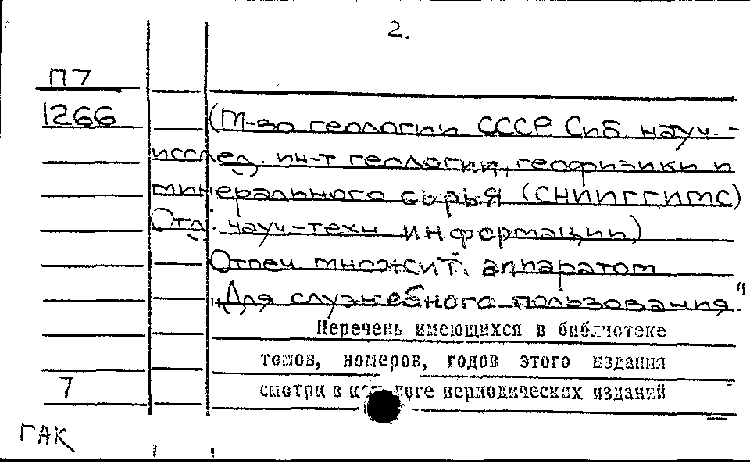 2.
П7
1266
(М-во геологии СССР. Сиб. науч.-
исслед. ин-т геологии, геофизики и
минерального сырья (СНИИГГИМС)
Отд. науч-техн информации)
Отпеч множит. аппаратом
"Для служебного пользования."
Перечень имеющихся в библиотеке
томов, номеров, годов этого издания
7
смотри в каталоге периодических изданий
ГАК